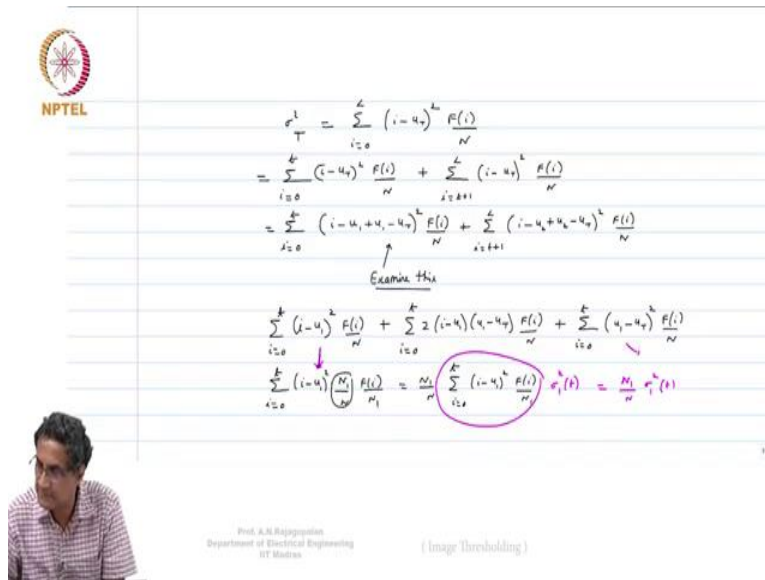 NPTEL
σ²_T = Σ_{i=0}^{L} (i-u_T)² F(i)/N
= Σ_{i=0}^{t} (i-u_T)² F(i)/N + Σ_{i=t+1}^{L} (i-u_T)² F(i)/N
= Σ_{i=0}^{t} (i-u_1+u_1-u_T)² F(i)/N + Σ_{i=t+1}^{L} (i-u_2+u_2-u_T)² F(i)/N
Examine this
Σ_{i=0}^{t} (i-u_1)² F(i)/N + Σ_{i=0}^{t} 2(i-u_1)(u_1-u_T) F(i)/N + Σ_{i=0}^{t} (u_1-u_T)² F(i)/N
Σ_{i=0}^{t} (i-u_1)² N_1/N F(i)/N_1 = N_1/N Σ_{i=0}^{t} (i-u_1)² F(i)/N_1 σ_1²(t) = N_1/N σ_1²(t)
Prof. A.N.Rajagopalan
Department of Electrical Engineering
IIT Madras
( Image Thresholding )